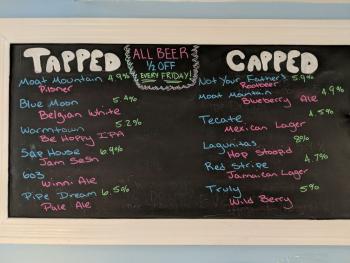 TAPPED
Moat Mountain 4.9%
Pilsner
Blue Moon 5.4%
Belgian White
Wormtown 5.2%
Be Hoppy IPA
Sap House 6.9%
Jam Sesh
603
Winni Ale
Pipe Dream 6.5%
Pale Ale
ALL BEER
½ OFF
EVERY FRIDAY!
CAPPED
Not Your Father's 5.9%
Rootbeer
Moat Mountain 4.9%
Blueberry Ale
Tecate 4.5%
Mexican Lager
Lagunitas 8%
Hop Stoopid
Red Stripe 4.7%
Jamaican Lager
Truly 5%
Wild Berry